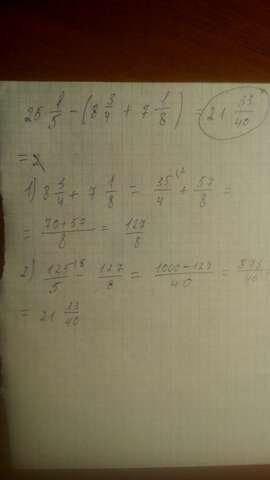 25 1/5 - (8 3/4 + 7 1/8) = 21 33/40
=
1) 8 3/4 + 7 1/8 = 35/4 \2 + 57/8 =
= 70+57/8 = 127/8
2) 125/5 \8 - 127/8 = 1000-127/40 = /40
= 21 33/40